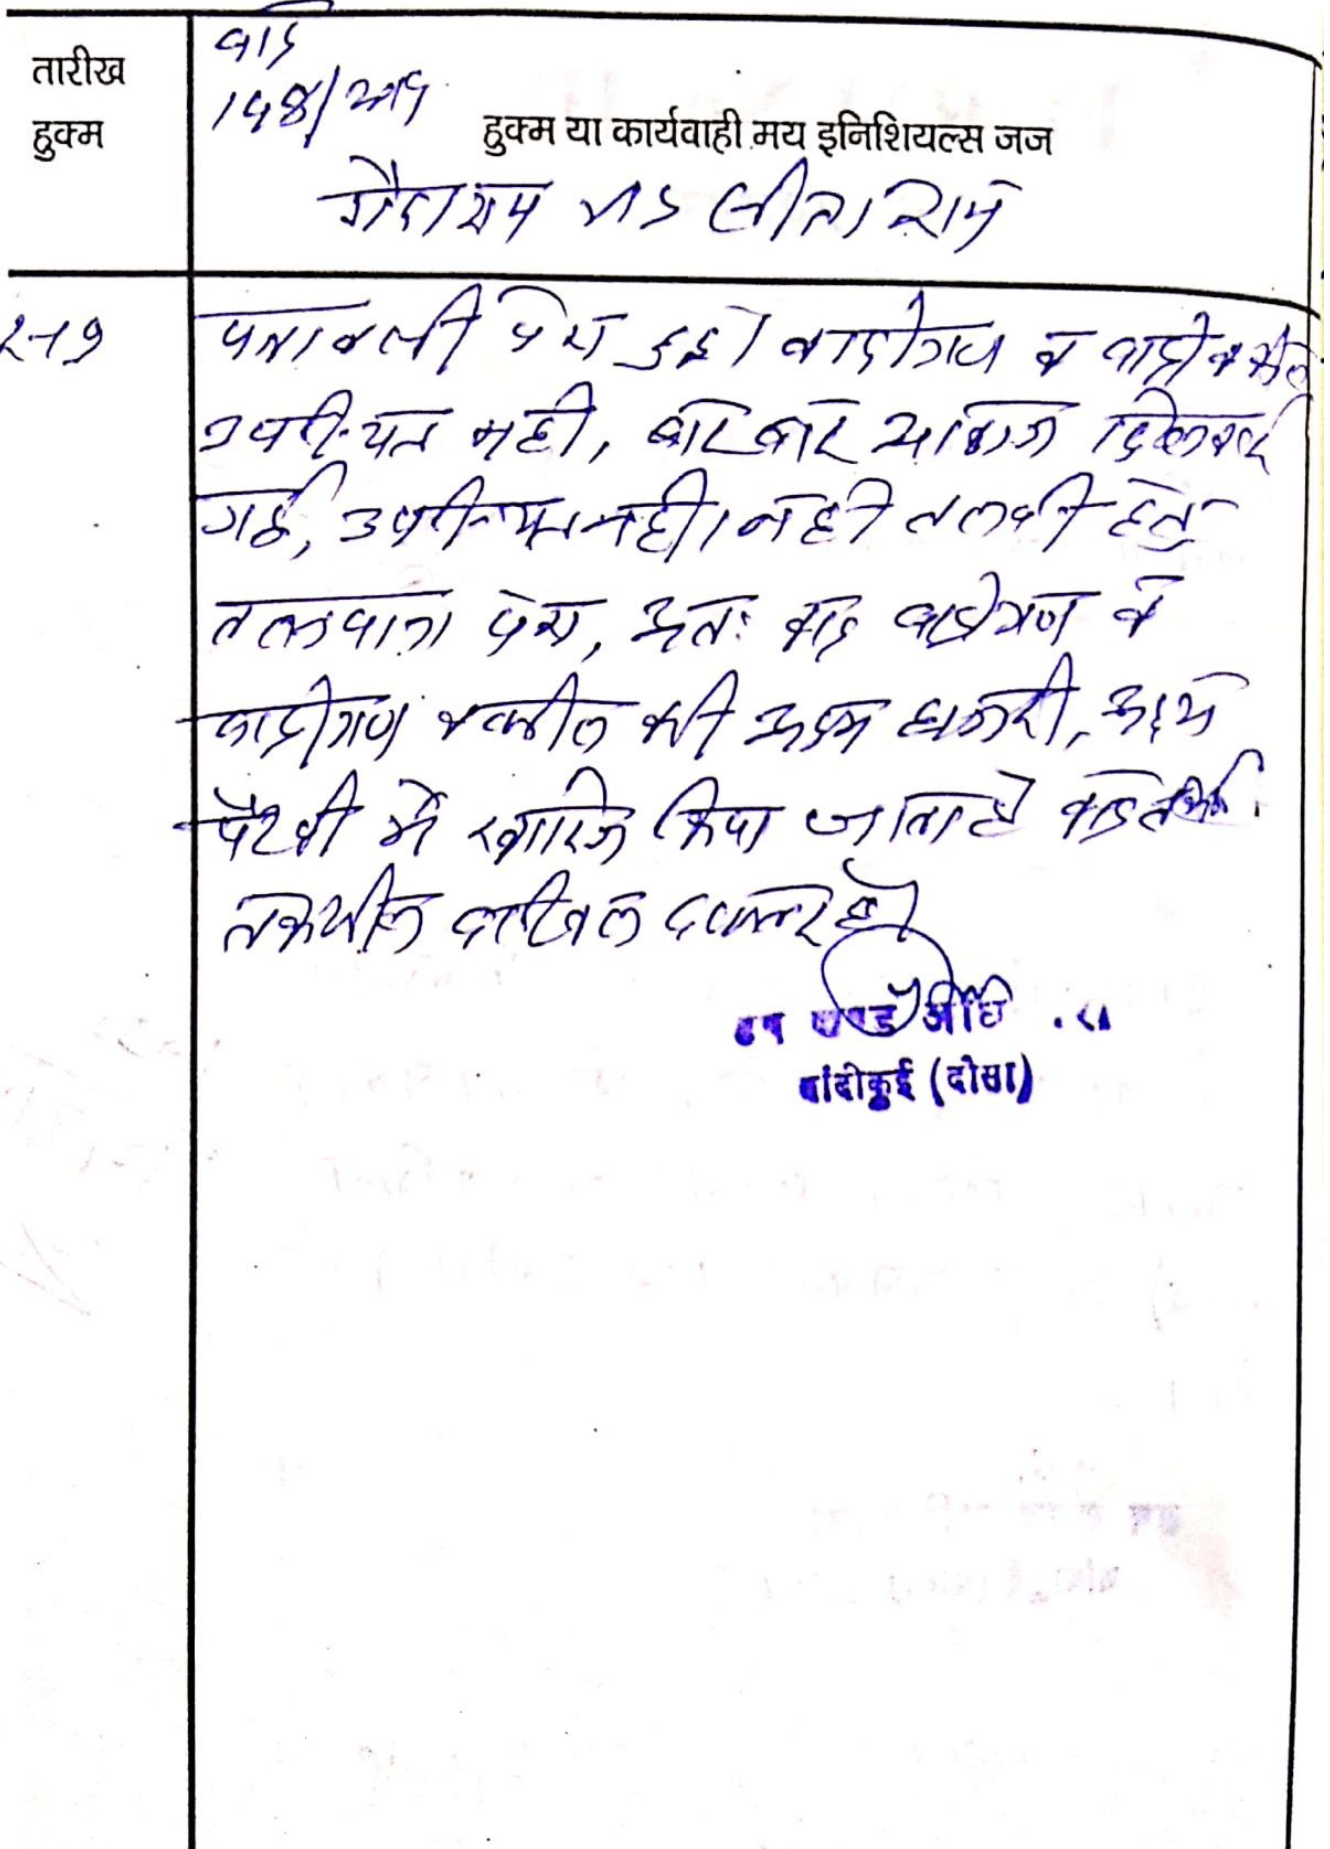 तारीख
हुक्म
वाद
हुक्म या कार्यवाही मय इनिशियल्स जज
गैंदाराम v/s सीताराम
पत्रावली पेश हुई। वादीगण व वादी वकील
उपस्थित नही, बार बार आवाज दिलवाई
गई, उपस्थित नही। न ही तलबी हेतु
तलवाना पेश, अतः वाद वादीगण व
वादीगण वकील की अदम हाजरी, अदम
पैरवी में खारिज किया जाता है
दाखिल दफ्तर हो।
उप खण्ड अधि
बांदीकुई (दौसा)